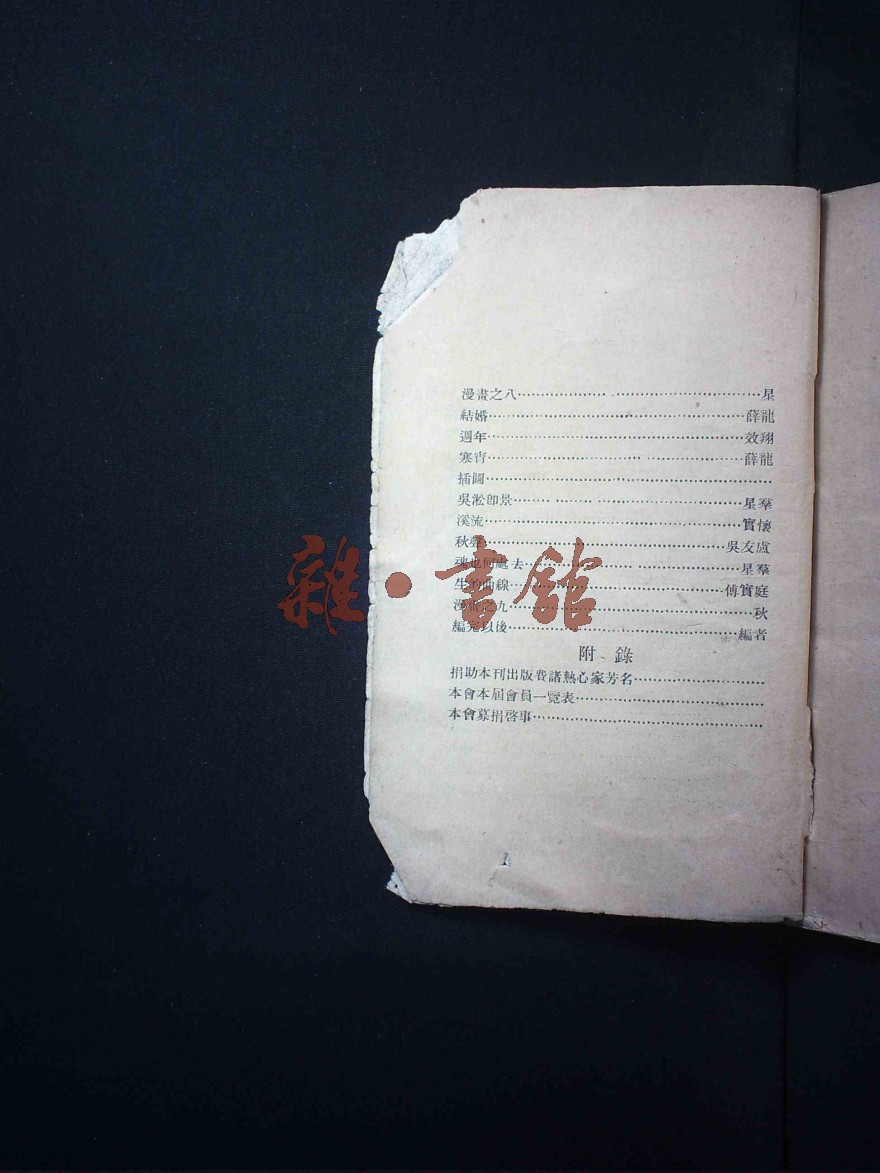 漫畫之八…………………………星
結婚…………………………薛龍
週年…………………………效翔
寒宵…………………………薛龍
插圖…………………………
吳淞卽景…………………………星羣
溪流…………………………實懷
秋聲…………………………吳友盧
魂也何處去…………………………星羣
生的曲線…………………………傅實庭
漫畫之九…………………………秋
編完以後…………………………編者
附錄
捐助本刊出版費諸熱心家芳名…………………………
本會本屆會員一覽表…………………………
本會募捐啓事…………………………
雜·書館